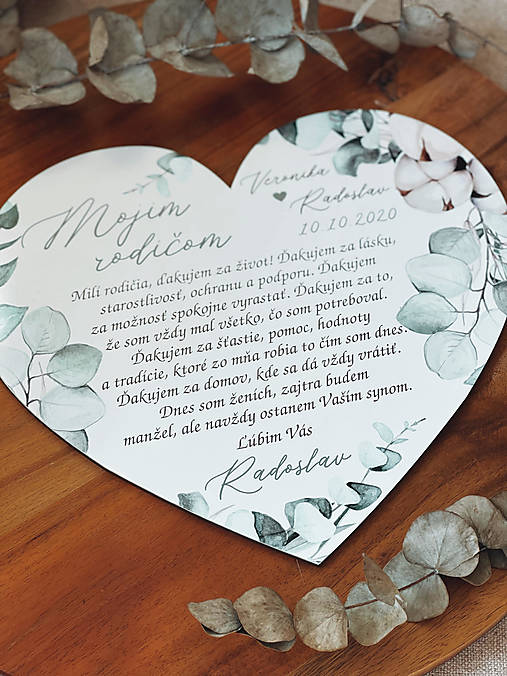 Mojim
rodičom
Veronika
Radoslav
10.10.2020
Milí rodičia, ďakujem za život! Ďakujem za lásku,
starostlivosť, ochranu a podporu. Ďakujem
za možnosť spokojne vyrastať. Ďakujem za to,
že som vždy mal všetko, čo som potreboval.
Ďakujem za šťastie, pomoc, hodnoty
a tradície, ktoré zo mňa robia to čím som dnes.
Ďakujem za domov, kde sa dá vždy vrátiť.
Dnes som ženích, zajtra budem
manžel, ale navždy ostanem Vaším synom.
Ľúbim Vás
Radoslav